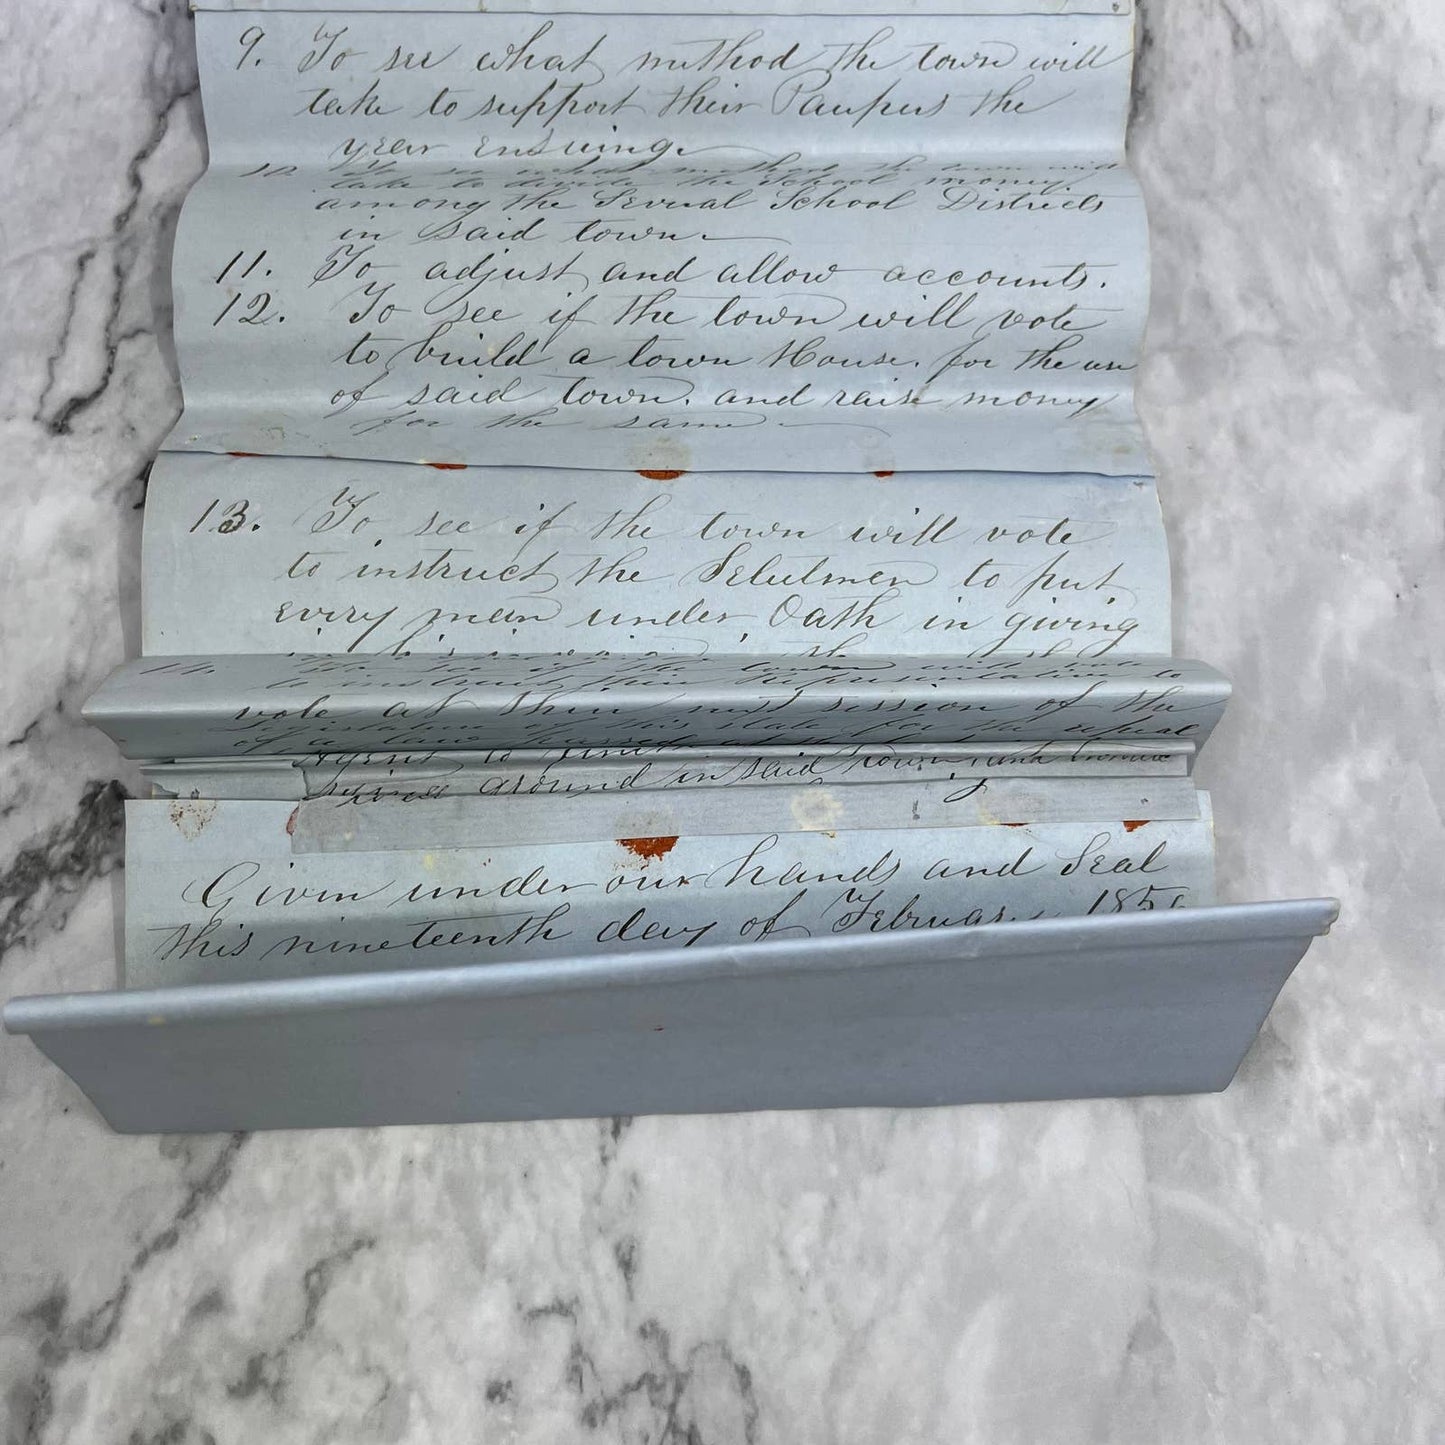 9. To see what method the town will
take to support their Paupers the
year ensuing.
10. To see what method the town will
take to divide the School money
among the Several School Districts
in said town.
11. To adjust and allow accounts.
12. To see if the town will vote
to build a town House. for the use
of said town. and raise money
for the same.
13. To see if the town will vote
to instruct the Selectmen to put
every man under Oath in giving
in his
14. To see if the town will vote
to instruct their Representative to
vote at their next session of the
Legislature of this State for the repeal
of a law passed
Agent to
ground in said town,
Given under our hands and Seal
this nineteenth day of February 185